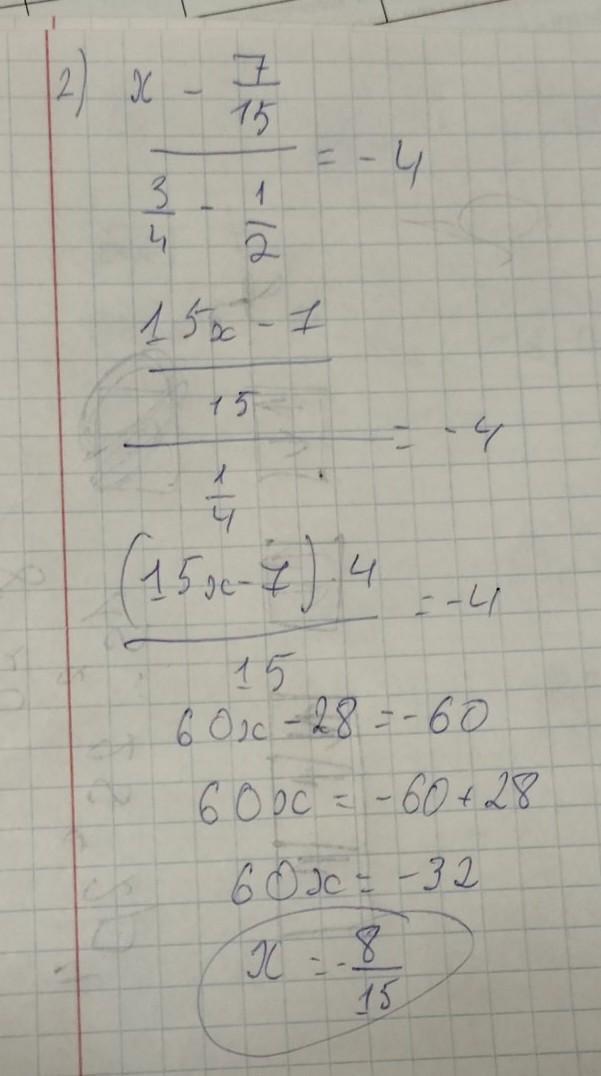 2) x - 7/15
= -4
3/4 - 1/2
15x - 7
15
= -4
1/4
(15x - 7) 4
= -4
15
60x - 28 = -60
60x = -60 + 28
60x = -32
x = -8/15